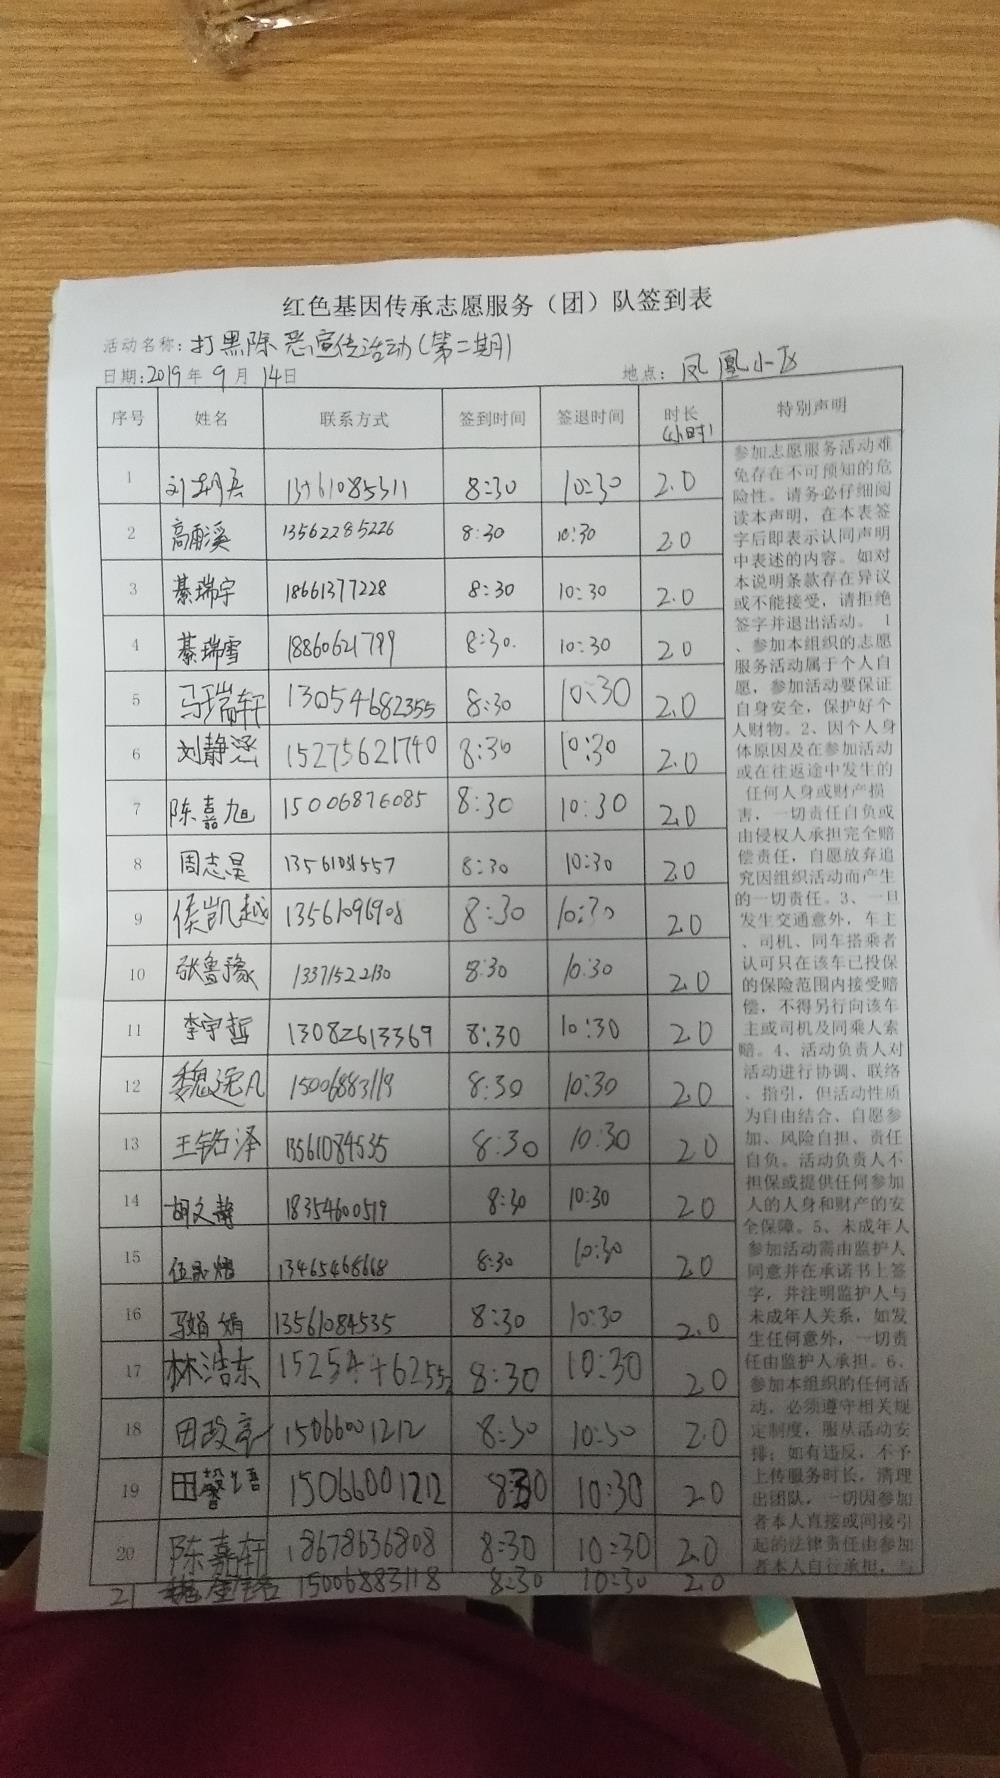 红色基因传承志愿服务（团）队签到表
活动名称：打黑除恶宣传活动(第二期)
日期：2019年9月14日 地点：凤凰小区
序号 姓名 联系方式 签到时间 签退时间 时长(小时) 特别声明
1 刘 13761085311 8:30 10:30 2.0
2 高甬溪 13562285226 8:30 10:30 2.0
3 綦瑞宇 18661377228 8:30 10:30 2.0
4 綦瑞雪 18860621799 8:30. 10:30 2.0
5 马瑞轩 13054682355 8:30 10:30 2.0
6 刘静涵 15275621740 8:30 10:30 2.0
7 陈嘉旭 15006876085 8:30 10:30 2.0
8 周志昊 8:30 10:30 2.0
9 侯凯越 13561096908 8:30 10:30 2.0
10 张鲁豫 13371522130 8:30 10:30 2.0
11 李宇哲 13082613369 8:30 10:30 2.0
12 魏逸凡 15006883119 8:30 10:30 2.0
13 王铭泽 13561084535 8:30 10:30 2.0
14 胡文静 18354600519 8:30 10:30 2.0
15 伍 13465468668 8:30 10:30 2.0
16 马娟娟 13561084535 8:30 10:30 2.0
17 林浩东 15254462552 8:30 10:30 2.0
18 田政 15066001212 8:30 10:30 2.0
19 田馨语 15066001212 8:30 10:30 2.0
20 陈嘉轩 18678636808 8:30 10:30 2.0
21 魏 15006883118 8:30 10:30 2.0
参加志愿服务活动难
免存在不可预知的危
险性。请务必仔细阅
读本声明，在本表签
字后即表示认同声明
中表述的内容。如对
本说明条款存在异议
或不能接受，请拒绝
签字并退出活动。 1
、参加本组织的志愿
服务活动属于个人自
愿，参加活动要保证
自身安全，保护好个
人财物。2、因个人身
体原因及在参加活动
或在往返途中发生的
任何人身或财产损
害，一切责任自负或
由侵权人承担完全赔
偿责任，自愿放弃追
究因组织活动而产生
的一切责任。3、一旦
发生交通意外，车主
、司机、同车搭乘者
认可只在该车已投保
的保险范围内接受赔
偿，不得另行向该车
主或司机及同乘人索
赔。4、活动负责人对
活动进行协调、联络
、指引，但活动性质
为自由结合、自愿参
加、风险自担、责任
自负。活动负责人不
担保或提供任何参加
人的人身和财产的安
全保障。5、未成年人
参加活动需由监护人
同意并在承诺书上签
字，并注明监护人与
未成年人关系，如发
生任何意外，一切责
任由监护人承担。6、
参加本组织的任何活
动，必须遵守相关规
定制度，服从活动安
排；如有违反，不予
上传服务时长，清理
出团队，一切因参加
者本人直接或间接引
起的法律责任由参加
者本人自行承担，与